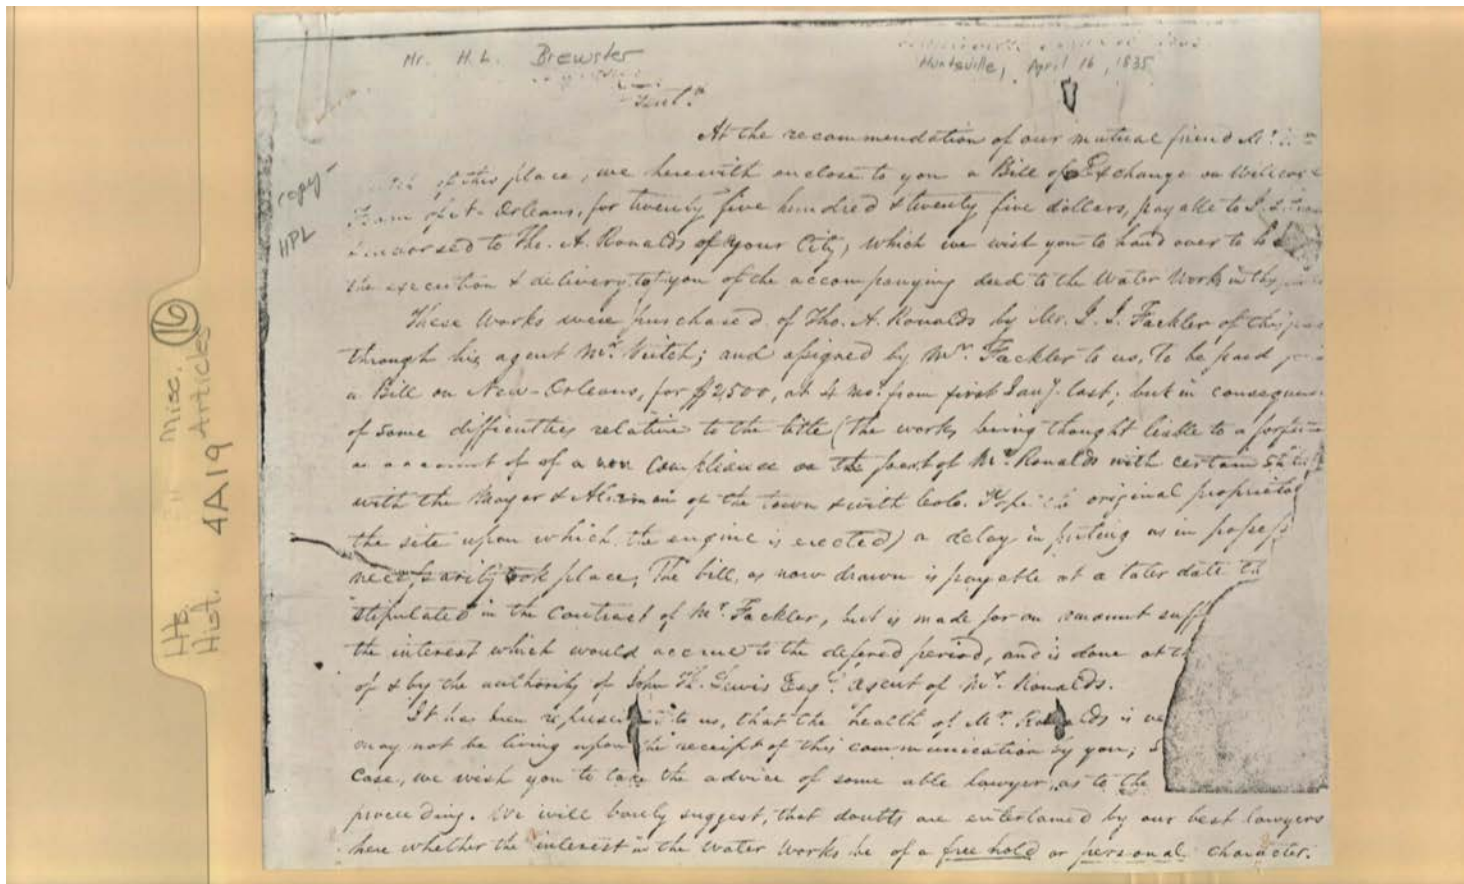 Mr. H. L. Brewster
Huntsville, April 16, 1835
At the recommendation of our mutual friend Mr.
of this place, we herewith enclose to you a Bill of Exchange on
of N. Orleans, for twenty five hundred & twenty five dollars, payable to
endorsed to Tho. A. Ronalds of your City, which we wish you to hand over to
the execution & delivery to you of the accompanying deed to the Water Works in
These Works were purchased of Tho. A. Ronalds by Mr. J. J. Fackler of this
through his agent Mr. Veitch; and assigned by Mr. Fackler to us, To be paid
a Bill on New-Orleans, for $2500, at 4 mo. from first Jany. last; but in consequen
of some difficulties relative to the title (the works being thought liable to a
on account of of a non compliance on the part of Mr. Ronalds with certain
with the Mayor & Aldermen of the town & with Colo. original proprietor
the site upon which the engine is erected) a delay in puting us in possess
necessarily took place, The bill, as now drawn is payable at a later date
stipulated in the contract of Mr. Fackler, but is made for an amount suff
the interest which would accrue to the defered period, and is done at
of & by the authority of John Esqr. agent of Mr. Ronalds.
It has been represented to us, that the health of Mr. Ronalds is
may not be living upon the receipt of this communication by you;
case, we wish you to take the advice of some able lawyer, as to the
proceeding. We will barely suggest, that doubts are entertained by our best lawyers
here whether the interest in the water works be of a free hold or personal character.
copy-
HPL
16
Misc.
Articles
4A19
Hist.